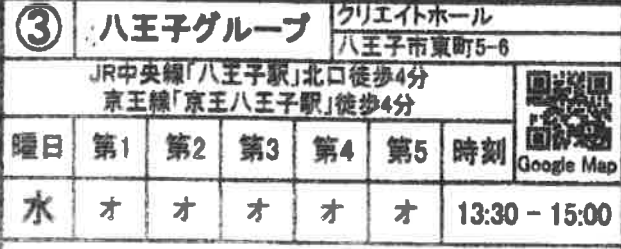 ③ 八王子グループ クリエイトホール
八王子市東町5-6
JR中央線「八王子駅」北口徒歩4分
京王線「京王八王子駅」徒歩4分
Google Map
曜日 第1 第2 第3 第4 第5 時刻
水 オ オ オ オ オ 13:30 - 15:00